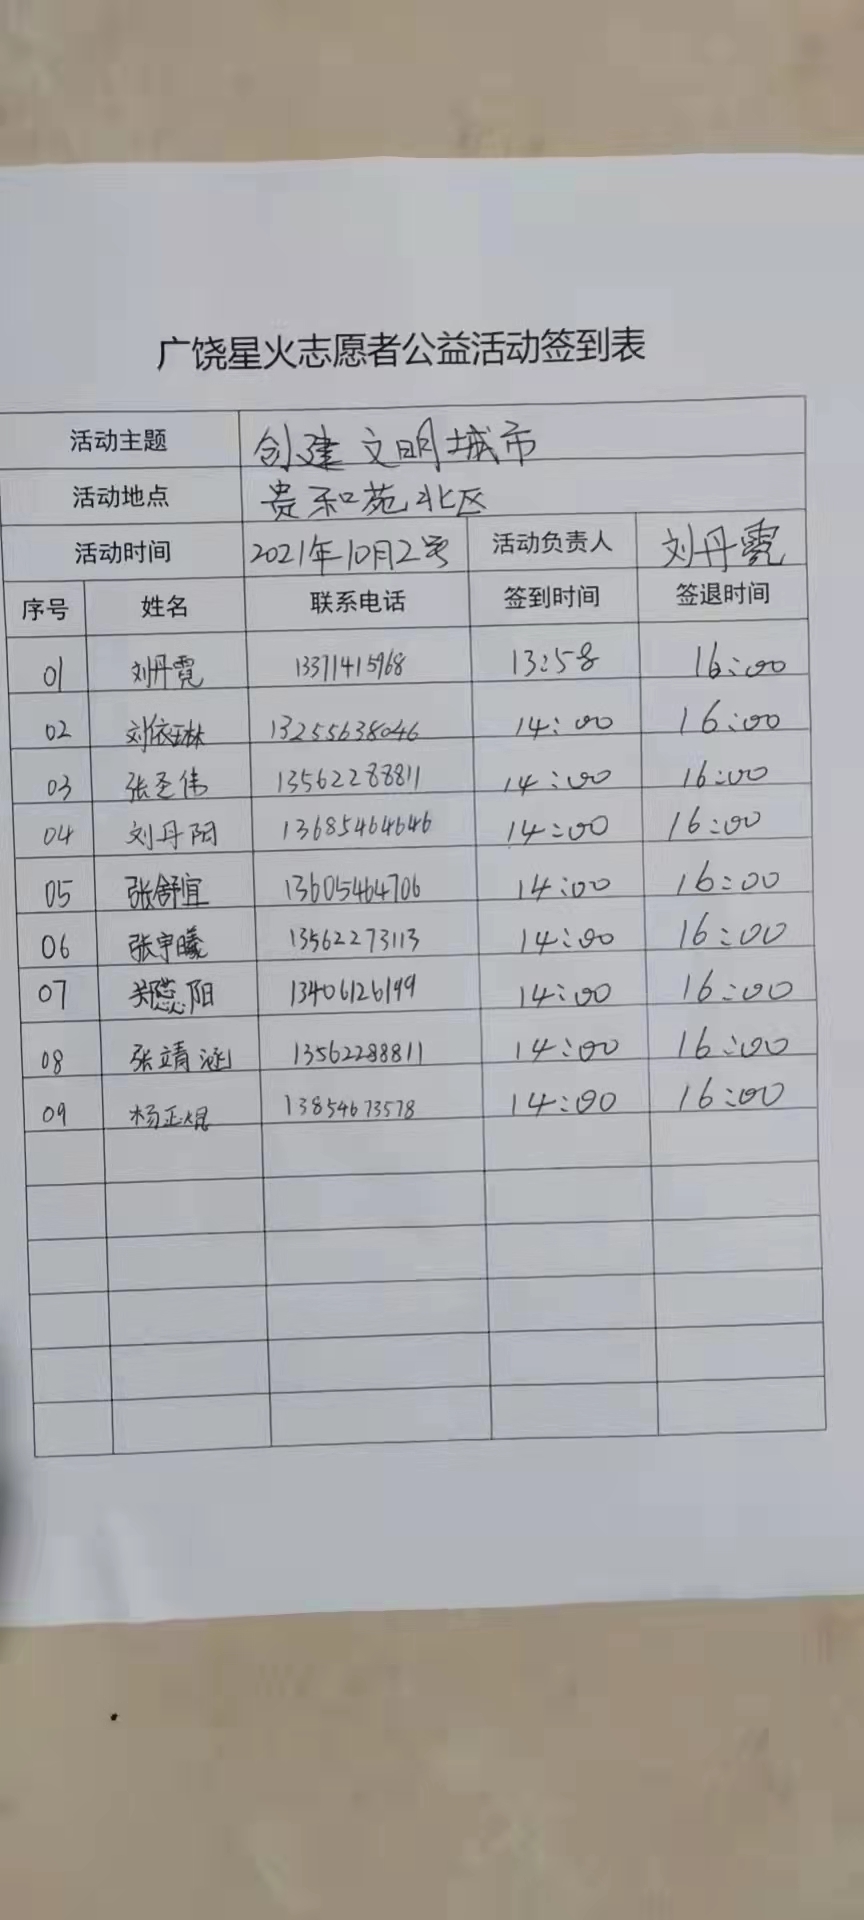 广饶星火志愿者公益活动签到表
活动主题 创建文明城市
活动地点 贵和苑北区
活动时间 2021年10月2号 活动负责人 刘丹霓
序号 姓名 联系电话 签到时间 签退时间
01 刘丹霓 13371415968 13:58 16:00
02 刘依琳 13255638046 14:00 16:00
03 张圣伟 13562288811 14:00 16:00
04 刘丹阳 13685464646 14:00 16:00
05 张舒宜 13605464706 14:00 16:00
06 张宇曦 13562273113 14:00 16:00
07 郑蕊阳 13406126199 14:00 16:00
08 张靖涵 13562288811 14:00 16:00
09 杨正焜 13854673578 14:00 16:00